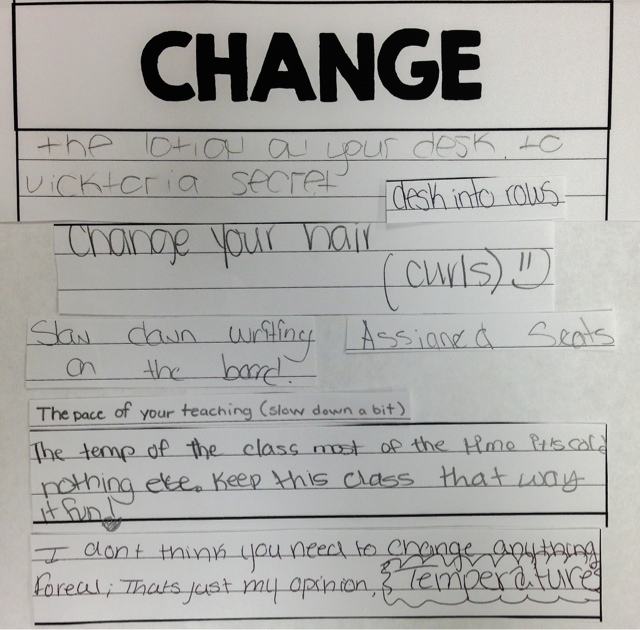 CHANGE
the lotion on your desk. to
vicktoria secret
desk into rows
Change your hair
(curls) =)
Slow down writing
on the board!
Assigned Seats
The pace of your teaching (slow down a bit)
The temp of the class most of the time it is cold
nothing else. Keep this class that way
it fun!
I dont think you need to change anything
foreal; Thats just my opinion. Temperature